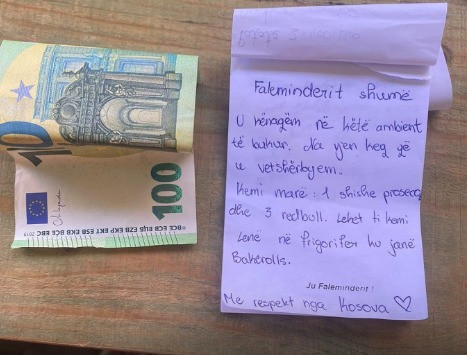 100
BCE ECB EЦБ EZB EKP EKT ESB EKB BĊE EBC 2019
Faleminderit shumë
U hënagëm në këtë ambient
të bukur. Na vjen keq që
u vetshërbyem.
Kemi marë : 1 shishe prosecco
dhe 3 redbull. Lehet ti keni
Lenë në frigorifer ku janë
Bakërolls.
Ju Faleminderit !
Me respekt nga Kosova ♡